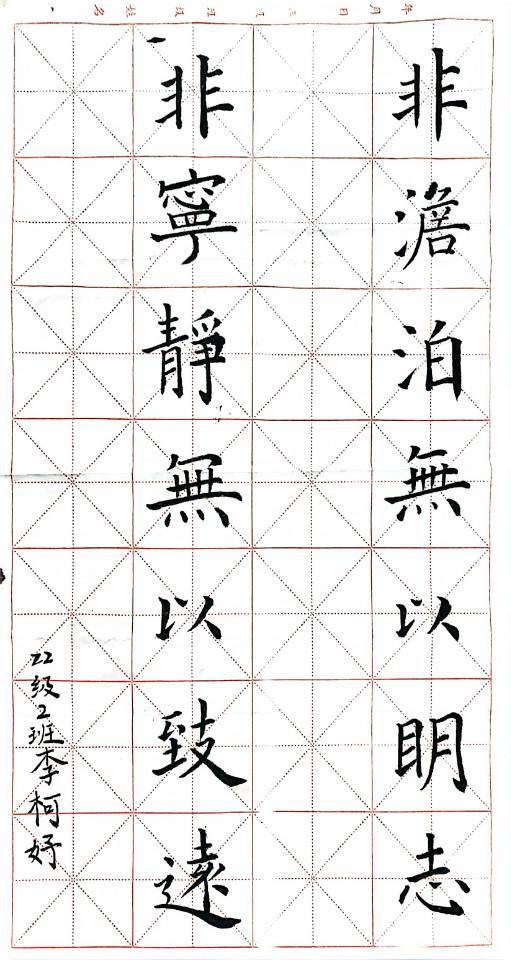 非澹泊無以明志
非寧靜無以致遠
22级2班李柯妤